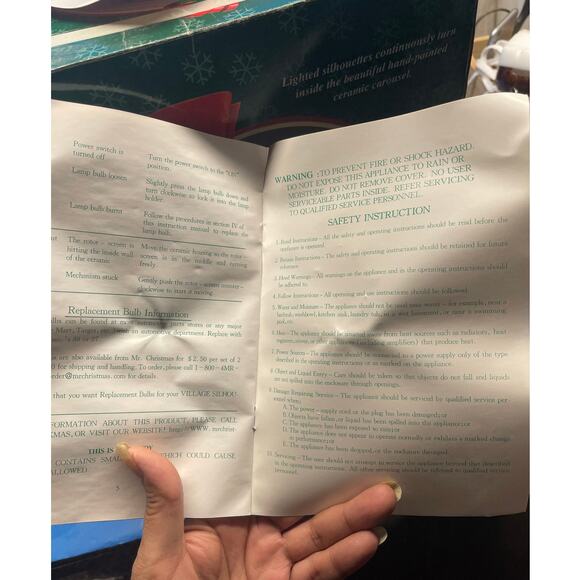 Lighted silhouettes continuously turn
inside the beautiful hand-painted
ceramic carousel.
Power switch is
turned off
Turn the power switch to the "ON"
position.
Lamp bulb loosen
Slightly press the lamp bulb down and
turn clockwise to lock it into the lamp
holder.
Lamp bulb burnt
Follow the procedures in section IV of
this instruction manual to replace the
lamp bulb.
The rotor - screen is
hitting the inside wall
of the ceramic
Move the ceramic housing so the rotor -
screen is in the middle and turning
freely.
Mechanism stuck
Gently push the rotor - screen counter -
clockwise to start it moving.
Replacement Bulb Information
can be found at most automotive parts stores or any major
Mart, Target, automotive department. Replace with
are also available from Mr. Christmas for $2.50 per set of 2
for shipping and handling. To order, please call 1-800-4MR-
order@mrchristmas.com for details.
that you want Replacement Bulbs for your VILLAGE SILHOU-
INFORMATION ABOUT THIS PRODUCT, PLEASE CALL
OR VISIT OUR WEBSITE! http://WWW. mrchrist-
THIS IS
CONTAINS WHICH COULD CAUSE
5
WARNING : TO PREVENT FIRE OR SHOCK HAZARD.
DO NOT EXPOSE THIS APPLIANCE TO RAIN OR
MOISTURE. DO NOT REMOVE COVER. NO USER
SERVICEABLE PARTS INSIDE. REFER SERVICING
TO QUALIFIED SERVICE PERSONNEL.
SAFETY INSTRUCTION
1. Read Instructions - All the safety and operating instructions should be read before the
appliance is operated.
2. Retain Instructions - The safety and operating instructions should be retained for future
reference.
3. Heed Warnings - All warnings on the appliance and in the operating instructions should
be adhered to.
4. Follow Instructions - All operating and use instructions should be followed.
5. Water and Moisture - The appliance should not be used near water - for example, near a
bathtub, washbowl, kitchen sink, laundry tub, in a wet basement, or near a swimming
pool, etc.
6. Heat - The appliance should be situated away from heat sources such as radiators, heat
registers, stoves, or other appliances (including amplifiers) that produce heat.
7. Power Sources - The appliance should be connected to a power supply only of the type
described in the operating instructions or as marked on the appliance.
8. Object and Liquid Entry - Care should be taken so that objects do not fall and liquids
are not spilled into the enclosure through openings.
9. Damage Requiring Service - The appliance should be serviced by qualified service per-
sonnel when:
A. The power - supply cord or the plug has been damaged; or
B. Objects have fallen, or liquid has been spilled into the appliance; or
C. The appliance has been exposed to rain; or
D. The appliance does not appear to operate normally or exhibits a marked change
in performance; or
E. The appliance has been dropped, or the enclosure damaged.
10. Servicing - The user should not attempt to service the appliance beyond that described
in the operating instructions. All other servicing should be referred to qualified service
personnel.